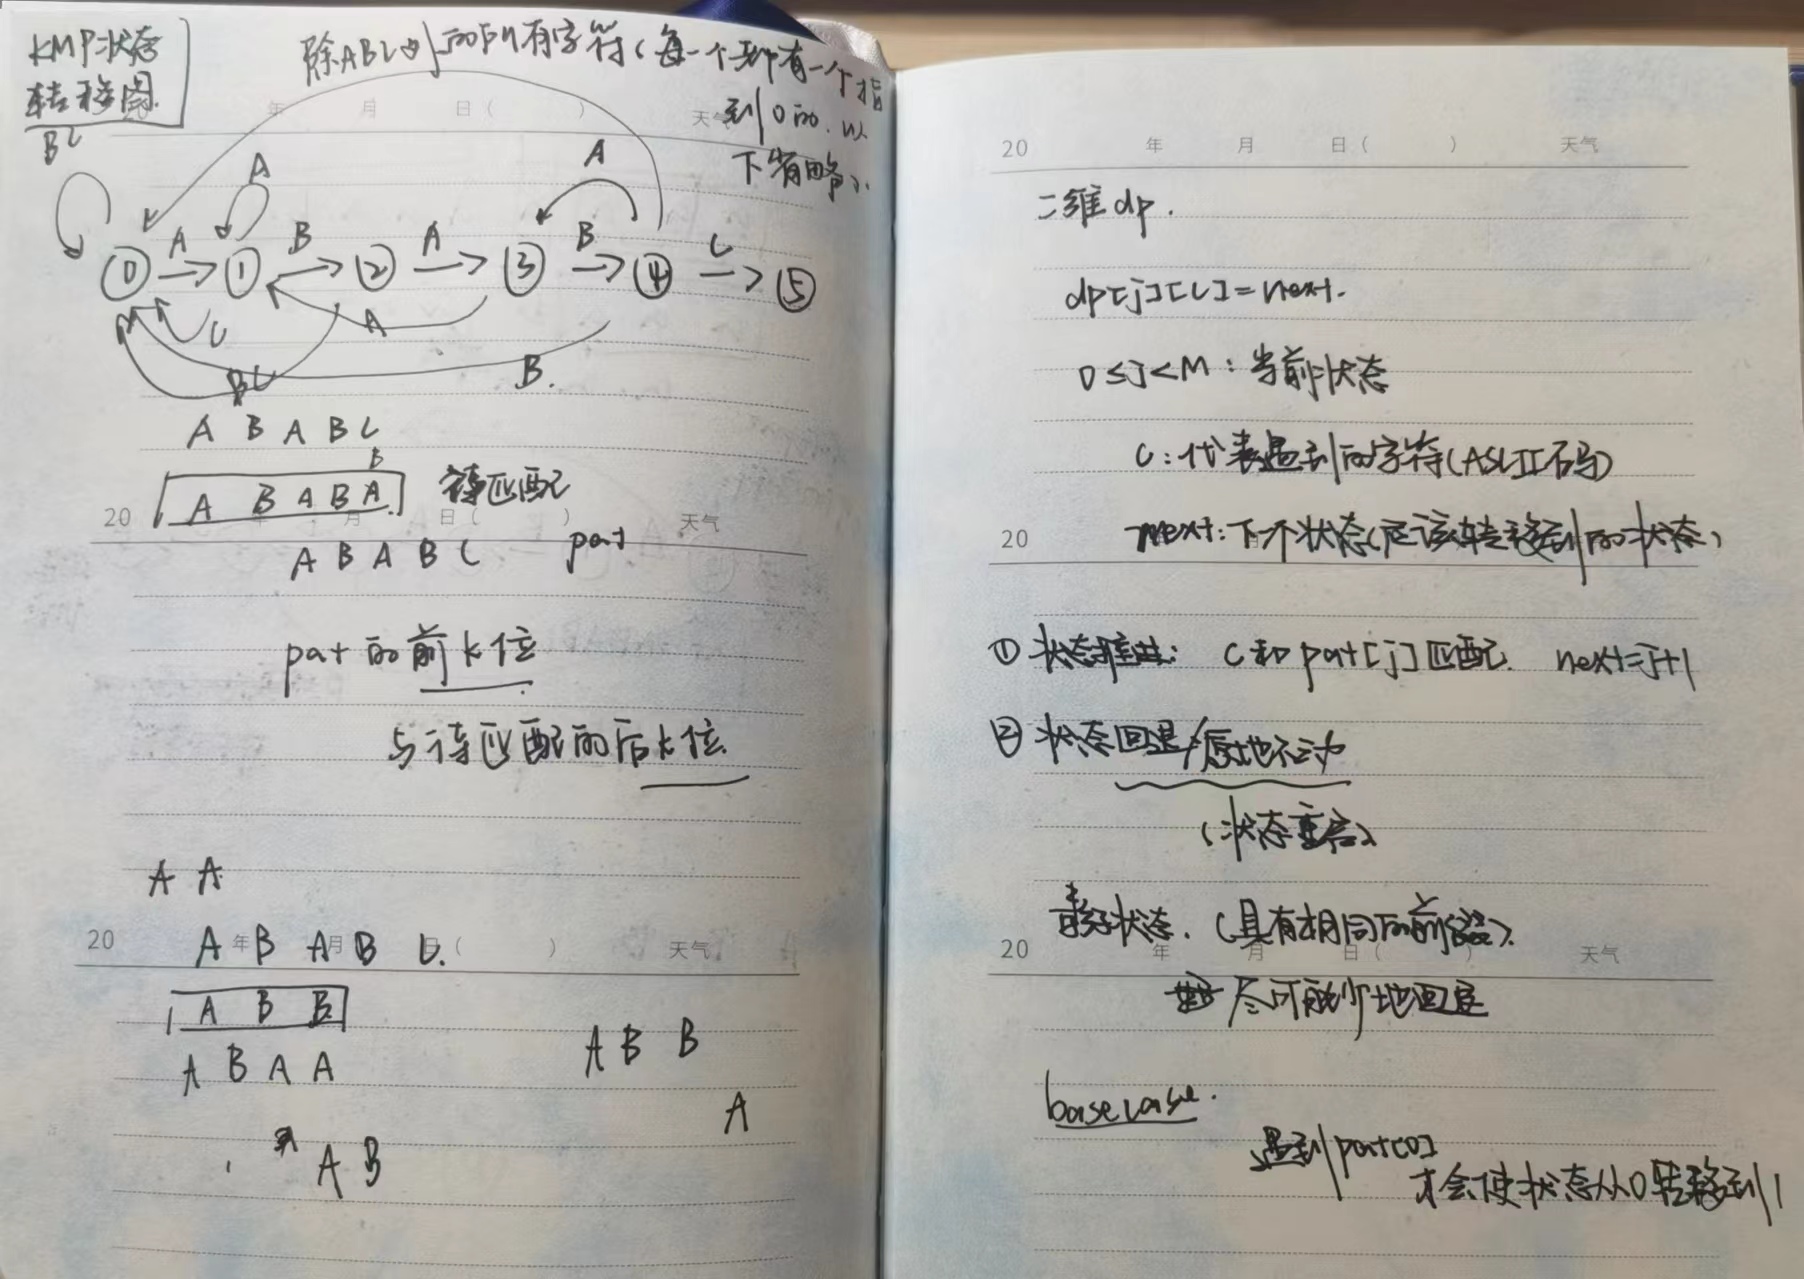 KMP状态
转移图
除ABC外的所有字符(每一个都有一个指
到0的.以
下省略).
年 月 日( ) 天气
BC
A
A
0 A 1 B 2 A 3 B 4 C 5
C
A
BC
B.
A B A B C
B
A B A B A 待匹配
20 年 月 日( ) 天气
A B A B C pat
pat的前k位
与待匹配的后k位
A A
A B A B C.
20 年 月 日( ) 天气
A B B
A B A A
A B B
A
A B
20 年 月 日( ) 天气
二维dp.
dp[j][c]=next.
0≤j<M:当前状态
c:代表遇到的字符(ASCII码)
20
next:下个状态(应该转移到的状态)
① 状态推进: c和pat[j]匹配. next=j+1
② 状态回退/原地不动
(状态重启)
影子状态.(具有相同的前缀).
20 年 月 日( ) 天气
尽可能少地回退
base case.
遇到pat[0]
才会使状态从0转移到1